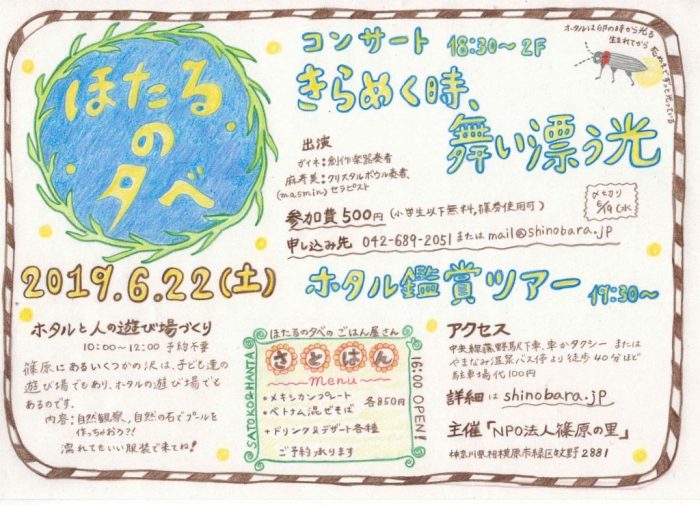 ほたる
の
夕べ
コンサート 18:30〜 2F
きらめく時、
舞い漂う光
ホタルは卵の時から光る
生まれてから
死ぬまでずっと光っている
出演
ガイネ:創作楽器奏者
麻寿美:クリスタルボウル奏者、
(masmin) セラピスト
参加費500円(小学生以下無料,篠券使用可)
〆切り
6/19(水)
申し込み先 042-689-2051またはmail@shinobara.jp
2019.6.22(土)
ホタル鑑賞ツアー 19:30〜
ホタルと人の遊び場づくり
10:00〜12:00 予約不要
篠原にあるいくつかの沢は、子ども達の
遊び場でもあり、ホタルの遊び場でも
あるのです。
内容:自然観察、自然の石でプールを
作っちゃおう?!
濡れてもいい服装で来てね!
ほたるの夕べの ごはん屋さん
さとはん
Menu
・メキシカンプレート
・ベトナム混ぜそば
各850円
+ドリンク&デザート各種
ご予約承ります
SATOKO&HANTA
16:00 OPEN!
アクセス
中央線藤野駅下車、車かタクシー または
やまなみ温泉バス停より徒歩40分ほど
駐車場代100円
詳細は shinobara.jp
主催「NPO法人篠原の里」
神奈川県相模原市緑区牧野2881